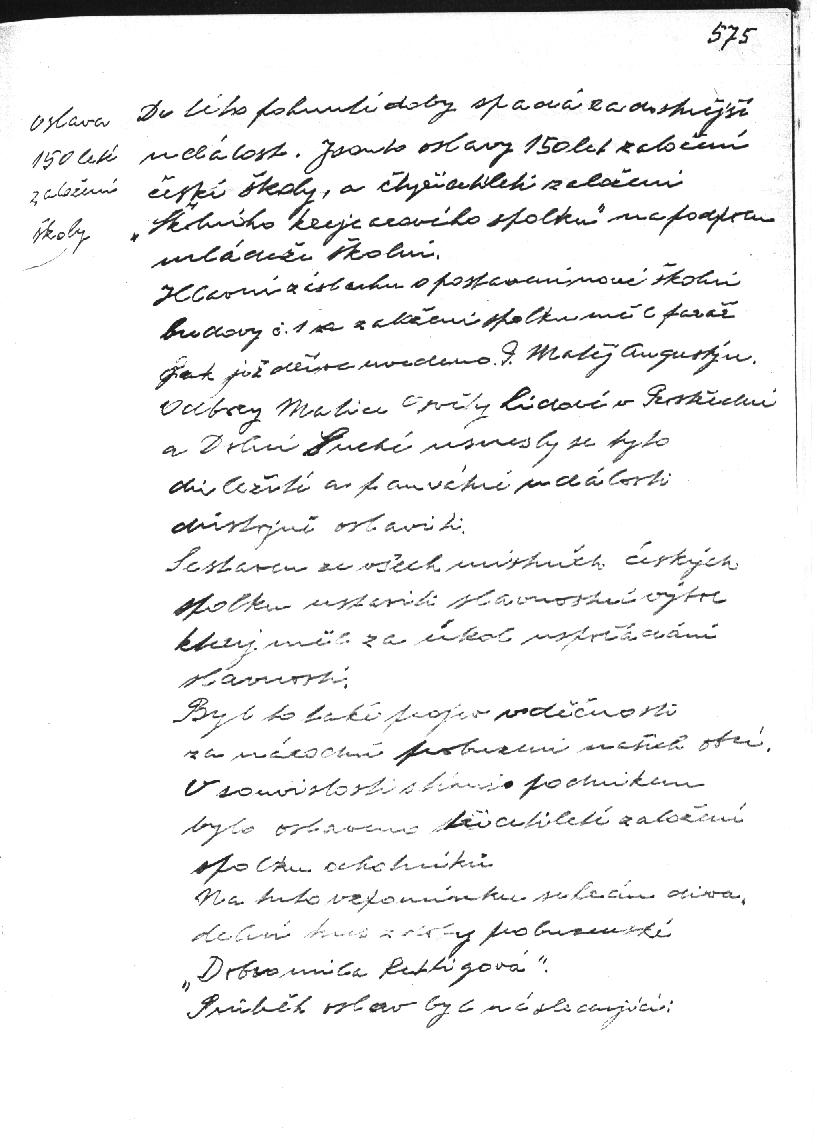 575
Oslava
150 letí
založení
školy
Do této pohnuté doby spadá radostnější
událost. Jsou to oslavy 150 let založení
české školy, a čtyřicítiletí založení
„Školního krejcarového spolku" na podporu
mládeže školní.
Hlavní zásluhu o postavení nové školní
budovy č. 1 a založení spolku měl farář
jak již dříve uvedeno P. Matěj Augustýn.
Odbory Matice Osvěty Lidové v Prostřední
a Dolní Suché usnesly se tyto
důležité a památné události
důstojně oslaviti.
Sestaven ze všech místních českých
spolku ustavili slavnostní výbor
který měl za úkol uspořádání
slavnosti.
Byl to také projev vděčnosti
za národní probuzení našich obcí.
V souvislosti s tímto podnikem
bylo oslaveno třicítiletí založení
spolku ochotníků
Na tuto vzpomínku sehrán diva,
delní kus z doby probuzenské
„Dobromila Rettigová".
Průběh oslav byl následující: